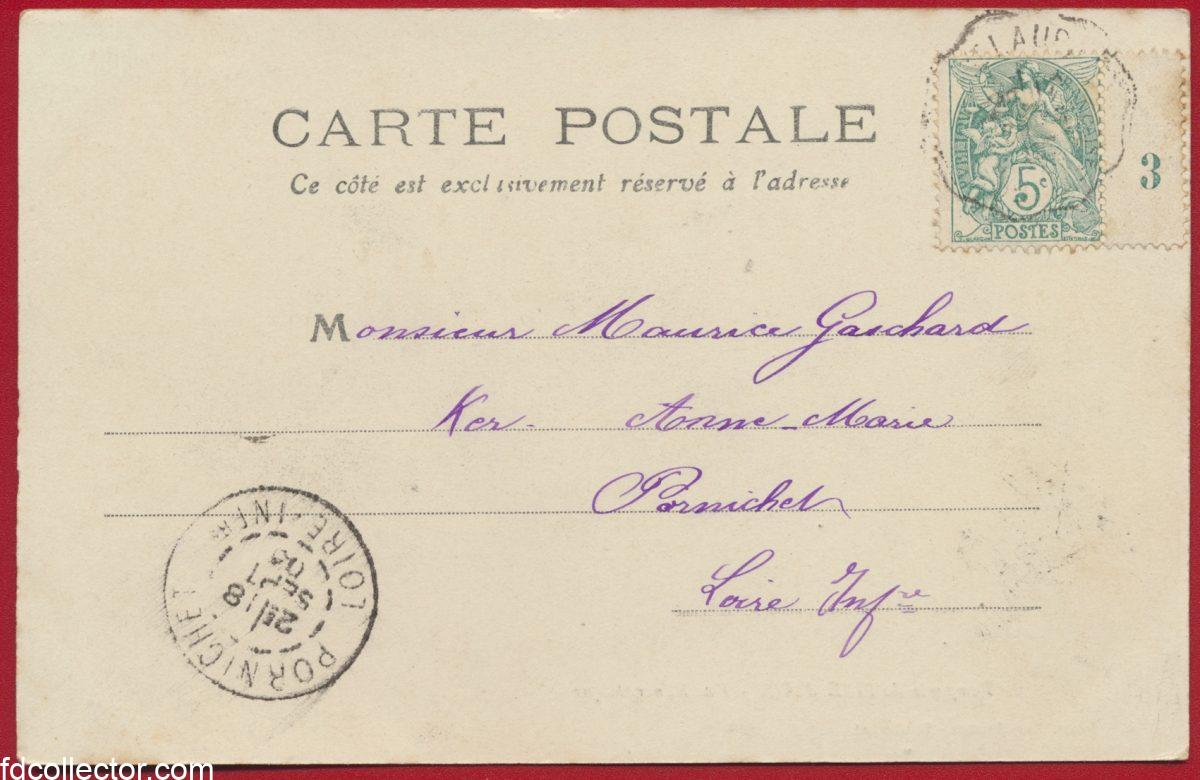 CARTE POSTALE
Ce côté est exclusivement réservé à l'adresse
LAUD
RÉPUBLIQUE FRANÇAISE
5c
POSTES
3
Monsieur Maurice Gaschard
Ker- Anne-Marie
Pornichet
Loire Infre
PORNICHET
LOIRE-INFRE
18
SEPT
03
fdcollector.com